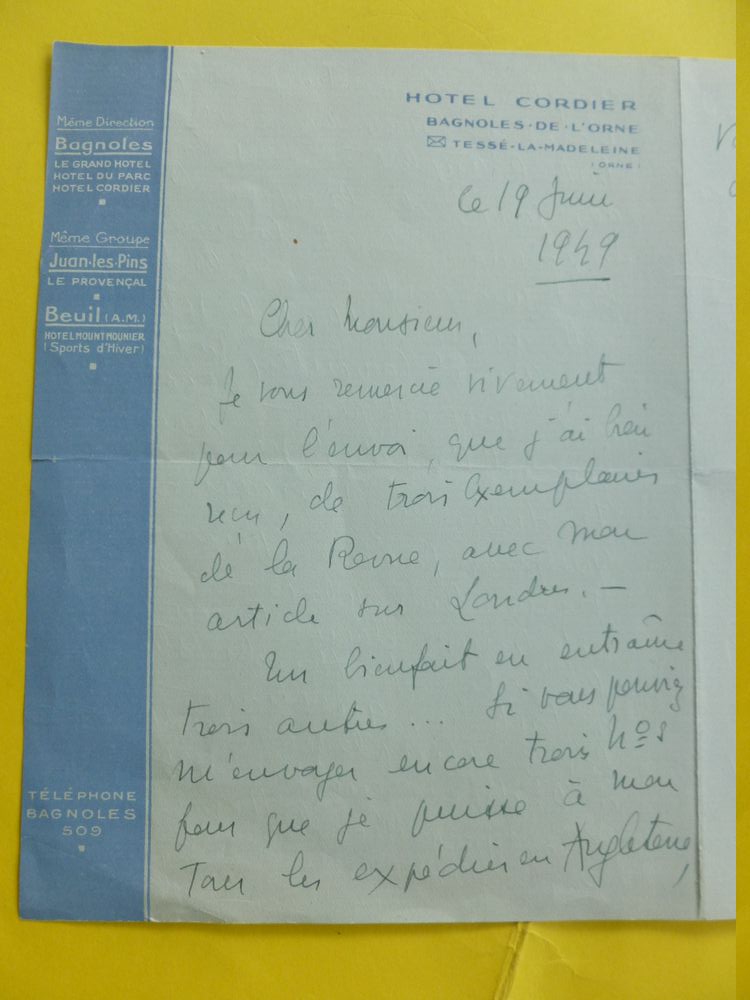 Même Direction
Bagnoles
LE GRAND HOTEL
HOTEL DU PARC
HOTEL CORDIER
Même Groupe
Juan-les-Pins
LE PROVENÇAL
Beuil (A.M.)
HOTEL MOUNT MOUNIER
(Sports d'Hiver)
TÉLÉPHONE
BAGNOLES
509
HOTEL CORDIER
BAGNOLES-DE-L'ORNE
TESSÉ-LA-MADELEINE
(ORNE)
le 19 Juin
1949
Cher Monsieur,
Je vous remercie vivement
pour l'envoi, que j'ai bien
reçu, de trois exemplaires
de la Revue, avec mon
article sur Londres. —
Un bienfait en entraîne
trois autres... Si vous pouviez
m'envoyer encore trois Nos
pour que je puisse à mon
Tour les expédier en Angleterre,